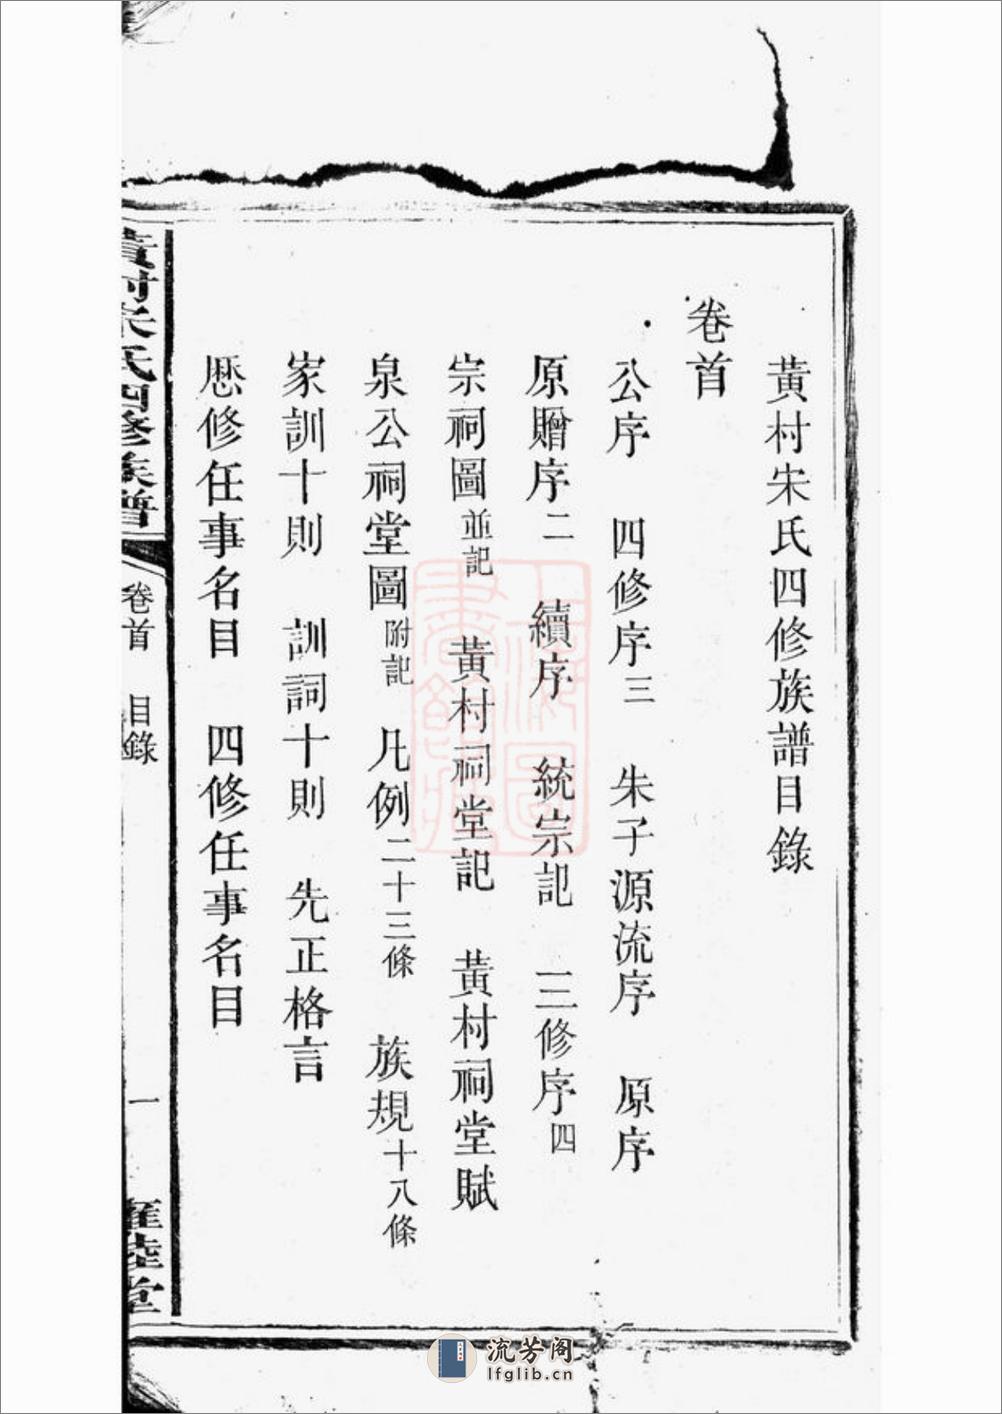 黄村宋氏四修族譜目錄
卷首
公序 四修序三 朱子源流序 原序
原贈序二 續序 統宗記 三修序四
宗祠圖並記 黄村祠堂記 黄村祠堂賦
泉公祠堂圖附記 凡例二十三條 族規十八條
家訓十則 訓詞十則 先正格言
歷修任事名目 四修任事名目
黄村宋氏四修族譜
卷首 目錄
一
雍睦堂
流芳阁
lfglib.cn